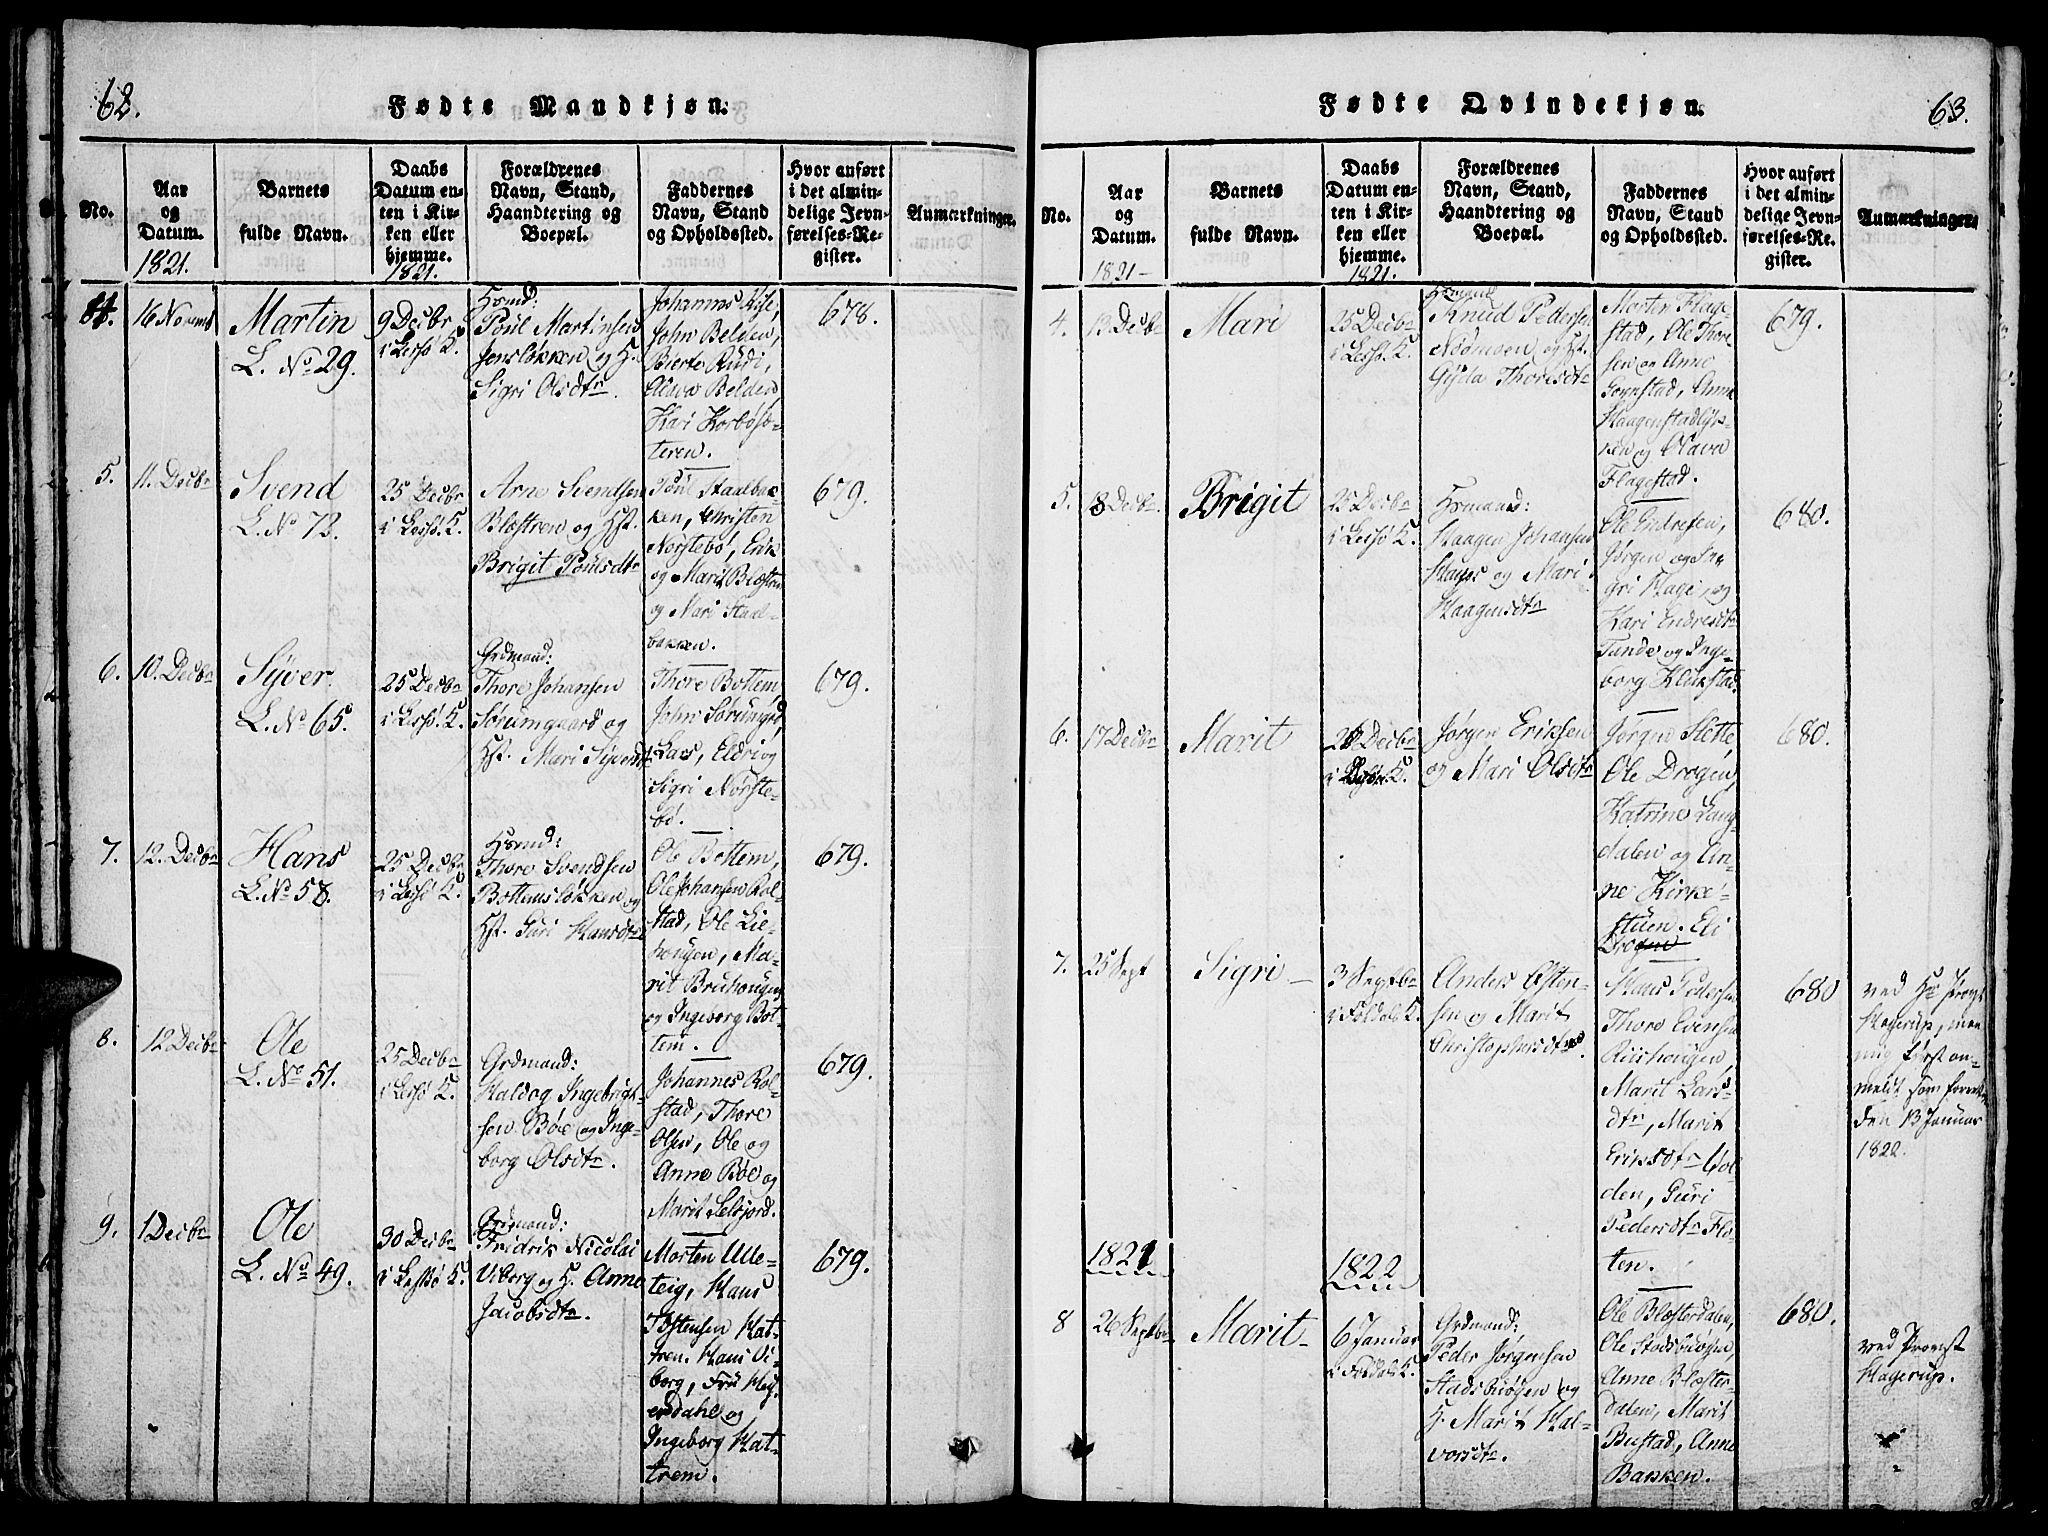 62.
Fødte Mandkjøn.
No.
Aar
og
Datum.
1821.
Barnets
fulde Navn.
Daabs
Datum en-
ten i Kir-
ken eller
hjemme.
1821.
Forældrenes
Navn, Stand,
Haandtering og
Boepæl.
Faddernes
Navn, Stand
og Opholdssted.
Hvor anført
i det almin-
delige Jevn-
førelses-Re-
gister.
Anmærkninger.
4.
16 Novemb
Martin
L. No 29.
9 Decbr
i Lessø K.
Hsmd:
Poul Martinsen
Jonsløkken og H.
Sigri Olsdtr.
Johannes Kile,
John Belden,
Bierte Rudi,
Olava Belden,
Kari Korbøsæ-
teren.
678.
5.
11. Decbr
Svend
L. No 72.
25 Decbr
i Lessø. K.
Arne Svendsen
Blæstren og Hst.
Brigit Poulsdtr
Poul Staalbak-
ken, Christen
Norstebö, Erik
og Marit Blæstren
og Mari Staal-
bakken.
679.
6.
10. Decbr
Syver.
L. No 65.
25 Decbr
i Lessø. K.
Grdmand:
Thore Johansen
Sørumgaard og
Hst. Mari Syversdtr
Thore Bottem,
John Sørumgrd,
Lars, Eldri og
Sigri Nørste-
bø.
679.
7.
12. Decbr
Hans
L. No 58.
25 Decbr
i Lessø K.
Hsmd:
Thore Svendsen
Bottemsløkken og
Hst. Guri Hansdtr
Ole Bottem,
Ole Johansen Rol-
stad, Ole Lie-
hougen, Ma-
rit Bruhougen
og Ingeborg Bot-
tem.
679.
8.
12 Decbr
Ole
L. No 51.
25 Decbr
i Lessø K.
Grdmand:
Haldog Ingebrigt-
sen Böe og Inge-
borg Olsdtr.
Johannes Rol-
stad, Thore
Olsen, Ole og
Anne Böe og
Marit Selsjord.
679.
9.
1 Decbr
Ole
L. No 49.
30 Decbr
i Lessø K.
Grdmand:
Fridrik Nicolai
Viborg og H. Anne
Jacobsdtr.
Morten Ulle-
teig, Hans
Tostensen Hat-
trem. Hans Vi-
borg, Fru Hey-
erdahl og
Ingeborg Hat-
trem.
679.
63.
Fødte Qvindekjøn.
No.
Aar
og
Datum.
1821-
Barnets
fulde Navn.
Daabs
Datum en-
ten i Kir-
ken eller
hjemme.
1821.
Forældrenes
Navn, Stand,
Haandtering og
Boepæl.
Faddernes
Navn, Stand
og Opholdssted.
Hvor anført
i det almin-
delige Jevn-
førelses-Re-
gister.
Anmærkninger.
4.
13 Decbr
Mari
25 Decbr
i Lessø. K.
Hsmand
Knud Pedersen
Nöömoen og Hst.
Gyda Thoresdtr
Morten Flage-
stad, Ole Thore-
sen og Anne
Sognstad, Anne
Haagenstadløk-
ken og Olava
Flagestad.
679.
5.
8 Decbr.
Brigit
25 Decbr
i Lessø K.
Hsmand:
Haagen Johansen
Hages og Mari
Haagensdtr
Ole Endresen,
Jørgen og In-
gri Hage, og
Kari Endresdtr
Tande og Inge-
borg Klukstad.
680.
6.
17 Decbr
Marit
26 Decbr
K.
Jørgen Eriksen
og Mari Olsdtr
Jørgen Slette,
Ole Drogen,
Katrine Lang-
dalen og An-
ne Kirke-
stuen. Eli
Drogen
680.
7.
25 Sept
Sigri -
3 Septbr
i Foldals K.
Anders Østen-
sen og Marit
Christophersdtr
Hans Pedersen
Thore Evensen
Riishougen,
Marit Lars-
dtr, Marit
Eriksdtr Vol-
den, Guri
Pedersdtr Flo-
ten.
680
ved Hr Provst
Hagerup, men
mig først an-
meldt som forrettet
den 13 Januar
1822.
1821
1822
8
26 Septbr
Marit-
6 Januar
i Foldals K.
Grdmand:
Peder Jørgensen
Stadsbuøyen og
H. Marit Hal-
vorsdtr.
Ole Blæsterdalen,
Ole Stadsbuøyen,
Anne Blæster-
dalen, Marit
Bustad, Anne
Bakken.
680.
ved Provst
Hagerup.